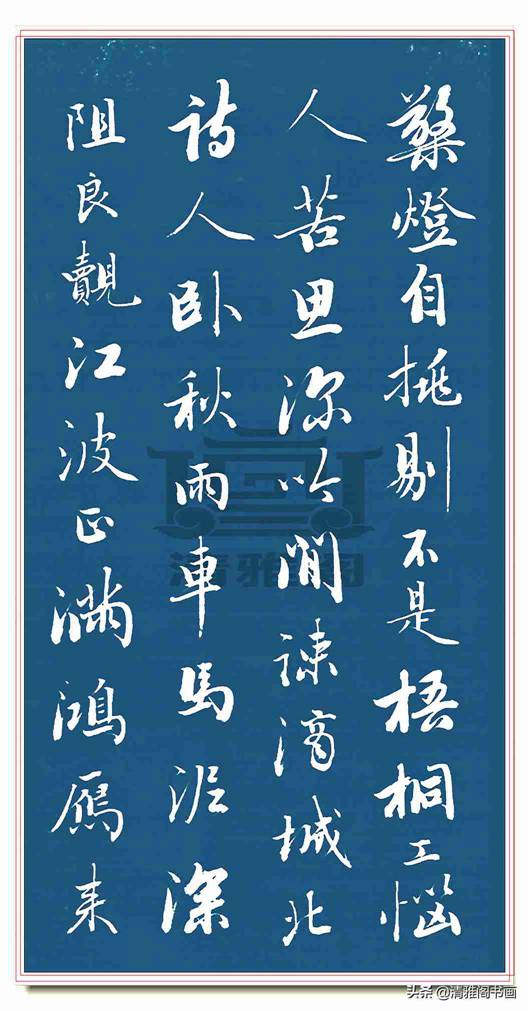 檠燈自挑剔不是梧桐工惱
人苦思深吟閒疎滴城北
詩人卧秋雨車馬泥深
阻良覿江波正滿鴻雁来
清雅阁
头条@清雅阁书画